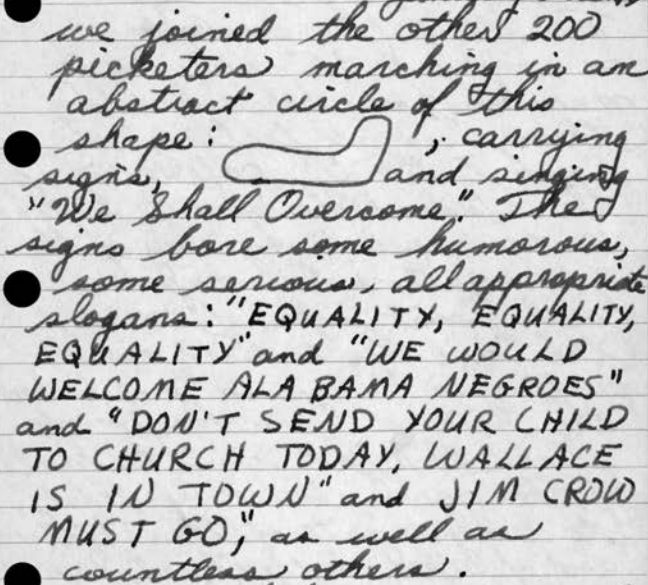 we joined the other 200
picketers marching in an
abstract circle of this
shape: , carrying
signs, and singing
"We Shall Overcome". The
signs bore some humorous,
some serious, all appropriate
slogans: "EQUALITY, EQUALITY,
EQUALITY" and "WE WOULD
WELCOME ALABAMA NEGROES"
and "DON'T SEND YOUR CHILD
TO CHURCH TODAY, WALLACE
IS IN TOWN" and JIM CROW
MUST GO," as well as
countless others.